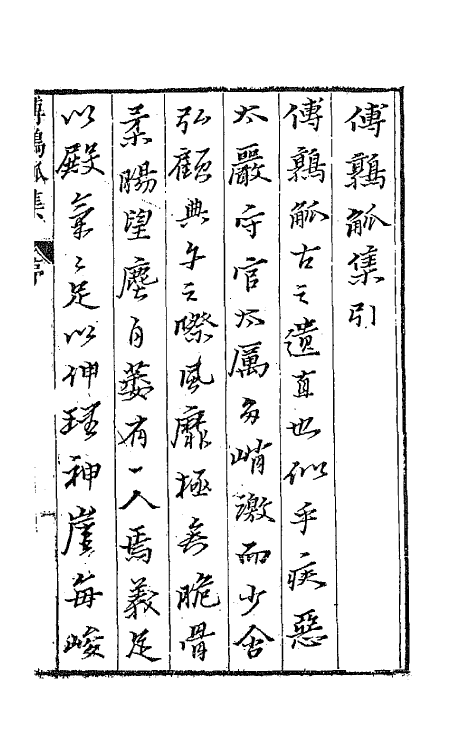 傅鶉觚集引
傅鶉觚古之遺直也似乎疾惡
太嚴守官太厲多峭激而少含
弘顧典午之際風靡極矣脆骨
柔腸望塵自萎有一人焉義足
以殿氣氣足以伸理神崖每峻
傅鶉觚集
序
一